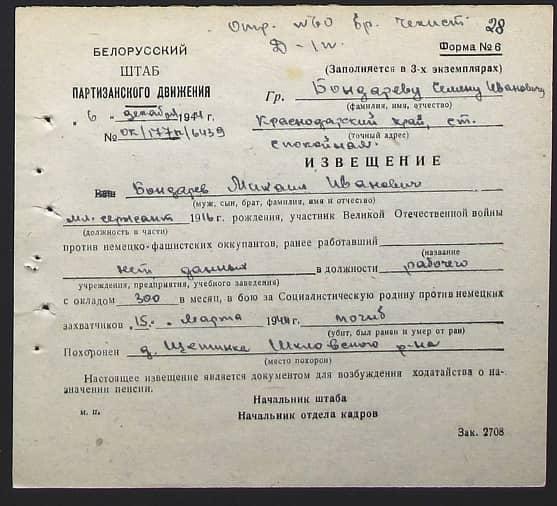 Отр. №60 бр. чекист 28
Д-1п.
БЕЛОРУССКИЙ
ШТАБ
ПАРТИЗАНСКОГО ДВИЖЕНИЯ
6 декабря 1944 г.
№ОК/177п/6439
Форма № 6
(Заполняется в 3-х экземплярах)
Гр. Бондареву Семену Ивановичу
(фамилия, имя, отчество)
Краснодарский край, ст.
(точный адрес)
спокойная.
ИЗВЕЩЕНИЕ
Ваш Бондарев Михаил Иванович
(муж, сын, брат, фамилия, имя и отчество)
мл. сержант 1916 г. рождения, участник Великой Отечественной войны
(должность в части)
против немецко-фашистских оккупантов, ранее работавший
(название
нет данных в должности рабочего
учреждения, предприятия, учебного заведения)
с окладом 300 в месяц, в бою за Социалистическую родину против немецких
захватчиков 15. марта 1944 г. погиб
(убит, был ранен и умер от ран)
Похоронен д. Щетинка Шкловского р-на
(место похорон)
Настоящее извещение является документом для возбуждения ходатайства о на-
значении пенсии.
Начальник штаба
м. п.
Начальник отдела кадров
Зак. 2708